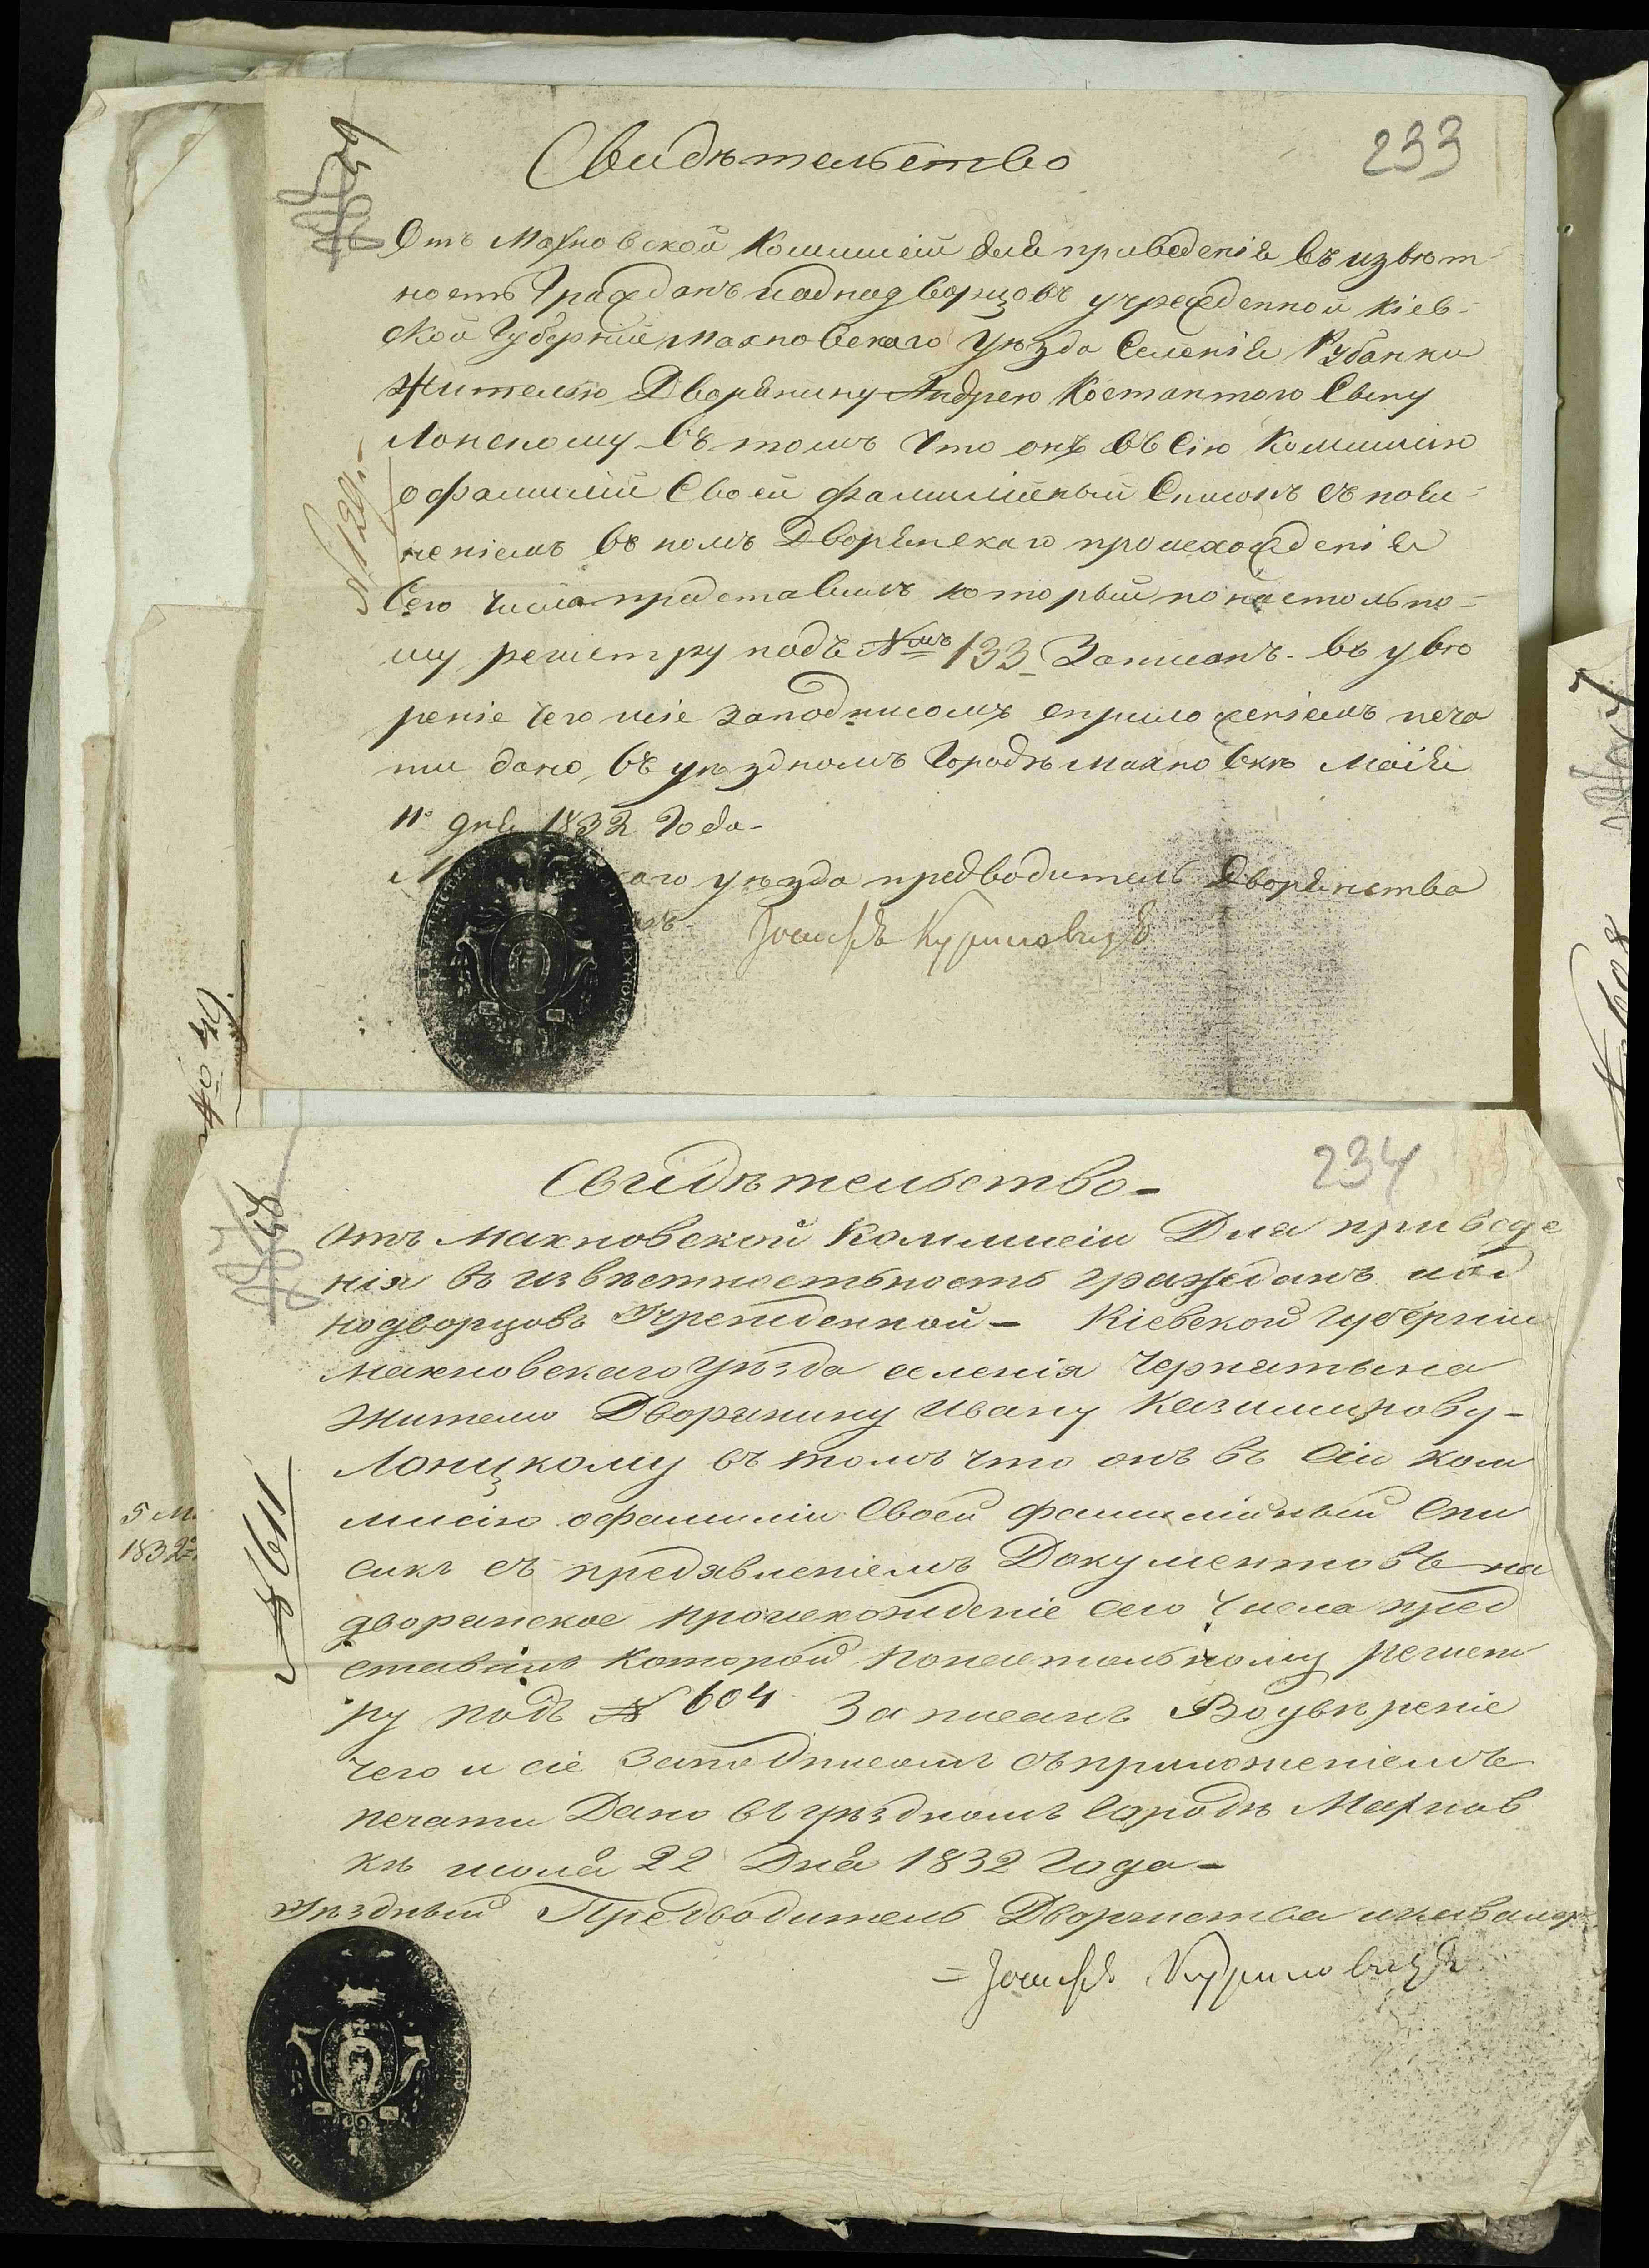 233
Свидѣтельство
Отъ Махновской Коммисіи для приведенія въ извѣст-
ность Гражданъ и однодворцовъ учрежденной Кіев-
ской Губерніи Махновскаго Уѣзда Селенія Рубанки
Жителю Дворянину Андрею Костантого Сыну
Лонскому въ томъ что онъ въ Сію Коммисію
о фамиліи Своей фамилійный Списокъ съ поям-
неніемъ въ номъ Дворянскаго происхожденія
Сего Числа представилъ который по настольно-
му реистру подъ №мъ 133 Записанъ. въ увѣ
реніе чего и сіе заподписомъ сприложеніемъ печа
ти дано въ уѣздномъ Городѣ Махновкѣ Маія
11 дня 1832 Года-
аго уѣзда предводитель Дворянства
Іосифъ Куриловичъ
№ 129
234
Свидѣтельство-
Отъ Махновской Коммисіи Для приведе
нія въ извѣстностьность гражданъ и од
нодворцовъ Учрежденной- Кіевской Губерніи
Махновскаго Уѣзда селенія Чернятына
Жителю Дворянину Ивану Казимирову-
Лонцкому въ томъ что онъ въ Сію Ком
мисію офамиліи Своей фамилійный Спи
сикъ съ предявленіемъ Документовъ на
дворянское происхожденіе сего Числа пред
ставилъ Которой Понастольному реист
ру подъ № 604 Записанъ Воувѣреніе
чего и сіе Заподписомъ съприложеніемъ
печати Дано въ уѣздномъ Городѣ Махнов
кѣ июля 22 Дня 1832 Года-
Уѣздный Предводитель Дворянства икавалер
= Іосифъ Куриловичъ
№ 611
№ 40
5 М
1832